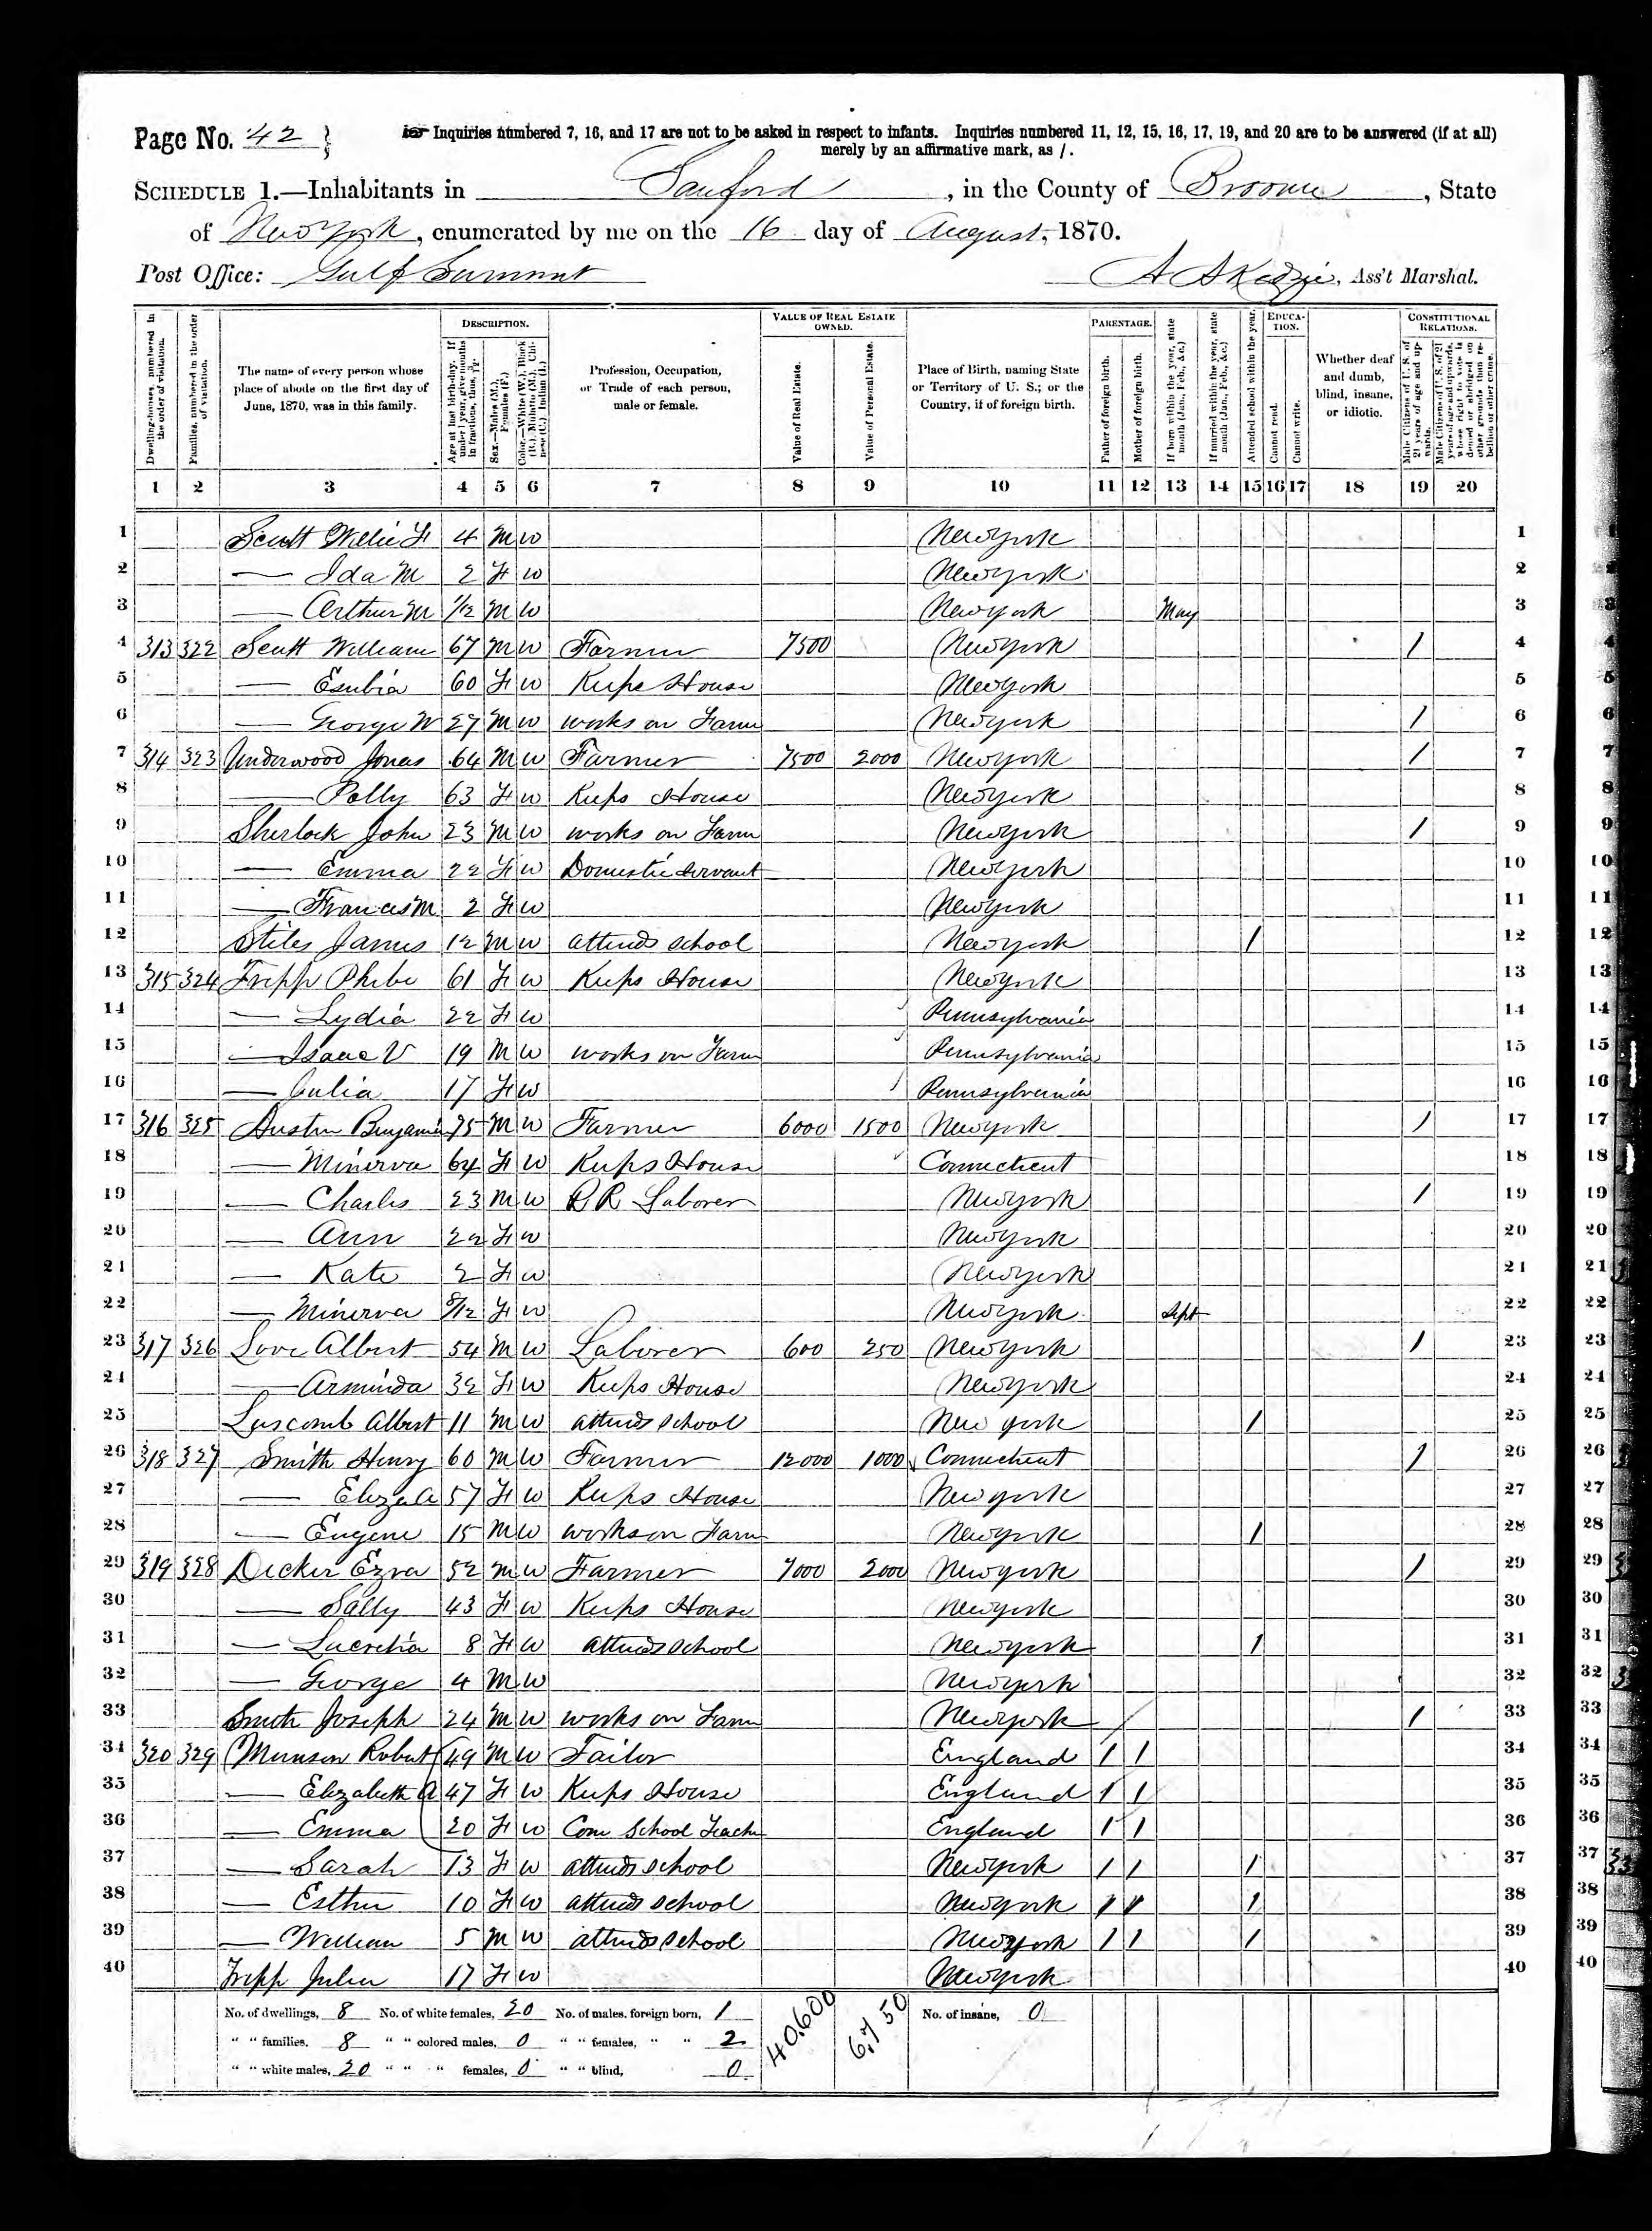 Page No. 42
Inquiries numbered 7, 16, and 17 are not to be asked in respect to infants. Inquiries numbered 11, 12, 15, 16, 17, 19, and 20 are to be answered (if at all)
merely by an affirmative mark, as /.
SCHEDULE 1.—Inhabitants in Sanford, in the County of Broome, State
of New York, enumerated by me on the 16 day of August, 1870.
Post Office: Gulf Summit A A Kedzie, Ass't Marshal.
DESCRIPTION. VALUE OF REAL ESTATE OWNED. PARENTAGE. EDUCATION. CONSTITUTIONAL RELATIONS.
Dwelling-houses, numbered in the order of visitation.
Families, numbered in the order of visitation.
The name of every person whose place of abode on the first day of June, 1870, was in this family.
Age at last birth-day. If under 1 year, give months in fractions, thus, 3/12
Sex.—Males (M.), Females (F.)
Color.—White (W.), Black (B.), Mulatto (M.), Chinese (C.), Indian (I.)
Profession, Occupation, or Trade of each person, male or female.
Value of Real Estate.
Value of Personal Estate.
Place of Birth, naming State or Territory of U. S.; or the Country, if of foreign birth.
Father of foreign birth.
Mother of foreign birth.
If born within the year, state month (Jan., Feb., &c.)
If married within the year, state month (Jan., Feb., &c.)
Attended school within the year.
Cannot read.
Cannot write.
Whether deaf and dumb, blind, insane, or idiotic.
Male Citizens of U. S. of 21 years of age and upwards.
Male Citizens of U. S. of 21 years of age and upwards, whose right to vote is denied or abridged on other grounds than rebellion or other crime.
1 2 3 4 5 6 7 8 9 10 11 12 13 14 15 16 17 18 19 20
1 Willie F 4 M W New York 1
2 — Ida M 2 F W New York 2
3 — Arthur M 1/12 M W New York May 3
4 313 322 William 67 M W Farmer 7500 New York / 4
5 — 60 F W Keeps House New York 5
6 — George W 27 M W works on Farm New York / 6
7 314 323 Underwood Jonas 64 M W Farmer 7500 2000 New York / 7
8 — Polly 63 F W Keeps House New York 8
9 Sherlock John 23 M W works on Farm New York / 9
10 — Emma 22 F W Domestic Servant New York 10
11 — Frances M 2 F W New York 11
12 Stiles James 12 M W attends school New York / 12
13 315 324 Tripp Phebe 61 F W Keeps House New York 13
14 — Lydia 22 F W Pennsylvania 14
15 — Isaac V 19 M W works on Farm Pennsylvania 15
16 — Julia 17 F W Pennsylvania 16
17 316 325 Austin Benjamin 75 M W Farmer 6000 1500 New York / 17
18 — Minerva 64 F W Keeps House Connecticut 18
19 — Charles 23 M W R R Laborer New York / 19
20 — Ann 22 F W New York 20
21 — Kate 2 F W New York 21
22 — Minerva 8/12 F W New York Sept 22
23 317 326 Love Albert 54 M W Laborer 600 250 New York / 23
24 — Arminda 32 F W Keeps House New York 24
25 Luscomb Albert 11 M W attends school New York / 25
26 318 327 Smith Henry 60 M W Farmer 12000 1000 Connecticut / 26
27 — Eliza A 57 F W Keeps House New York 27
28 — Eugene 15 M W works on Farm New York / 28
29 319 328 Decker Ezra 52 M W Farmer 7000 2000 New York / 29
30 — Sally 43 F W Keeps House New York 30
31 — Lucretia 8 F W attends school New York / 31
32 — George 4 M W New York 32
33 Smith Joseph 24 M W works on Farm New York / 33
34 320 329 Munson Robert 49 M W Tailor England / / 34
35 — Elizabeth A 47 F W Keeps House England / / 35
36 — Emma 20 F W Com School Teacher England / / 36
37 — Sarah 13 F W attends school New York / / / 37
38 — Esther 10 F W attends school New York / / / 38
39 — William 5 M W attends school New York / / / 39
40 Tripp Julia 17 F W New York 40
No. of dwellings, 8 No. of white females, 20 No. of males, foreign born, 1 40,600 6,750 No. of insane, 0
" " families, 8 " " colored males, 0 " " females, " " 2
" " white males, 20 " " " females, 0 " " blind, 0